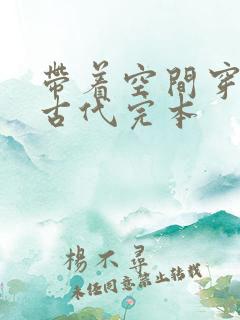 帶着空間穿
古代完本
楊不尋
未经同意禁止转载